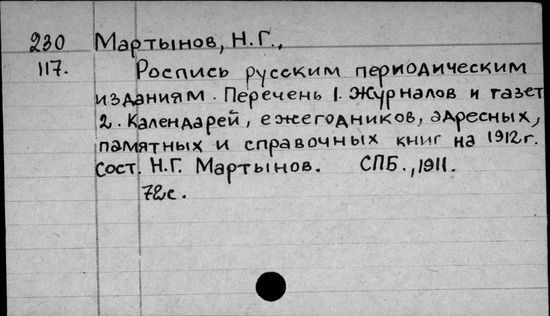 230 Мартынов, Н.Г.,
117. Роспись русским периодическим
изданиям. Перечень 1. Журналов и газет
2. Календарей, ежегодников, адресных,
памятных и справочных книг на 1912г.
Сост. Н.Г. Мартынов. СПБ., 1911.
72с.